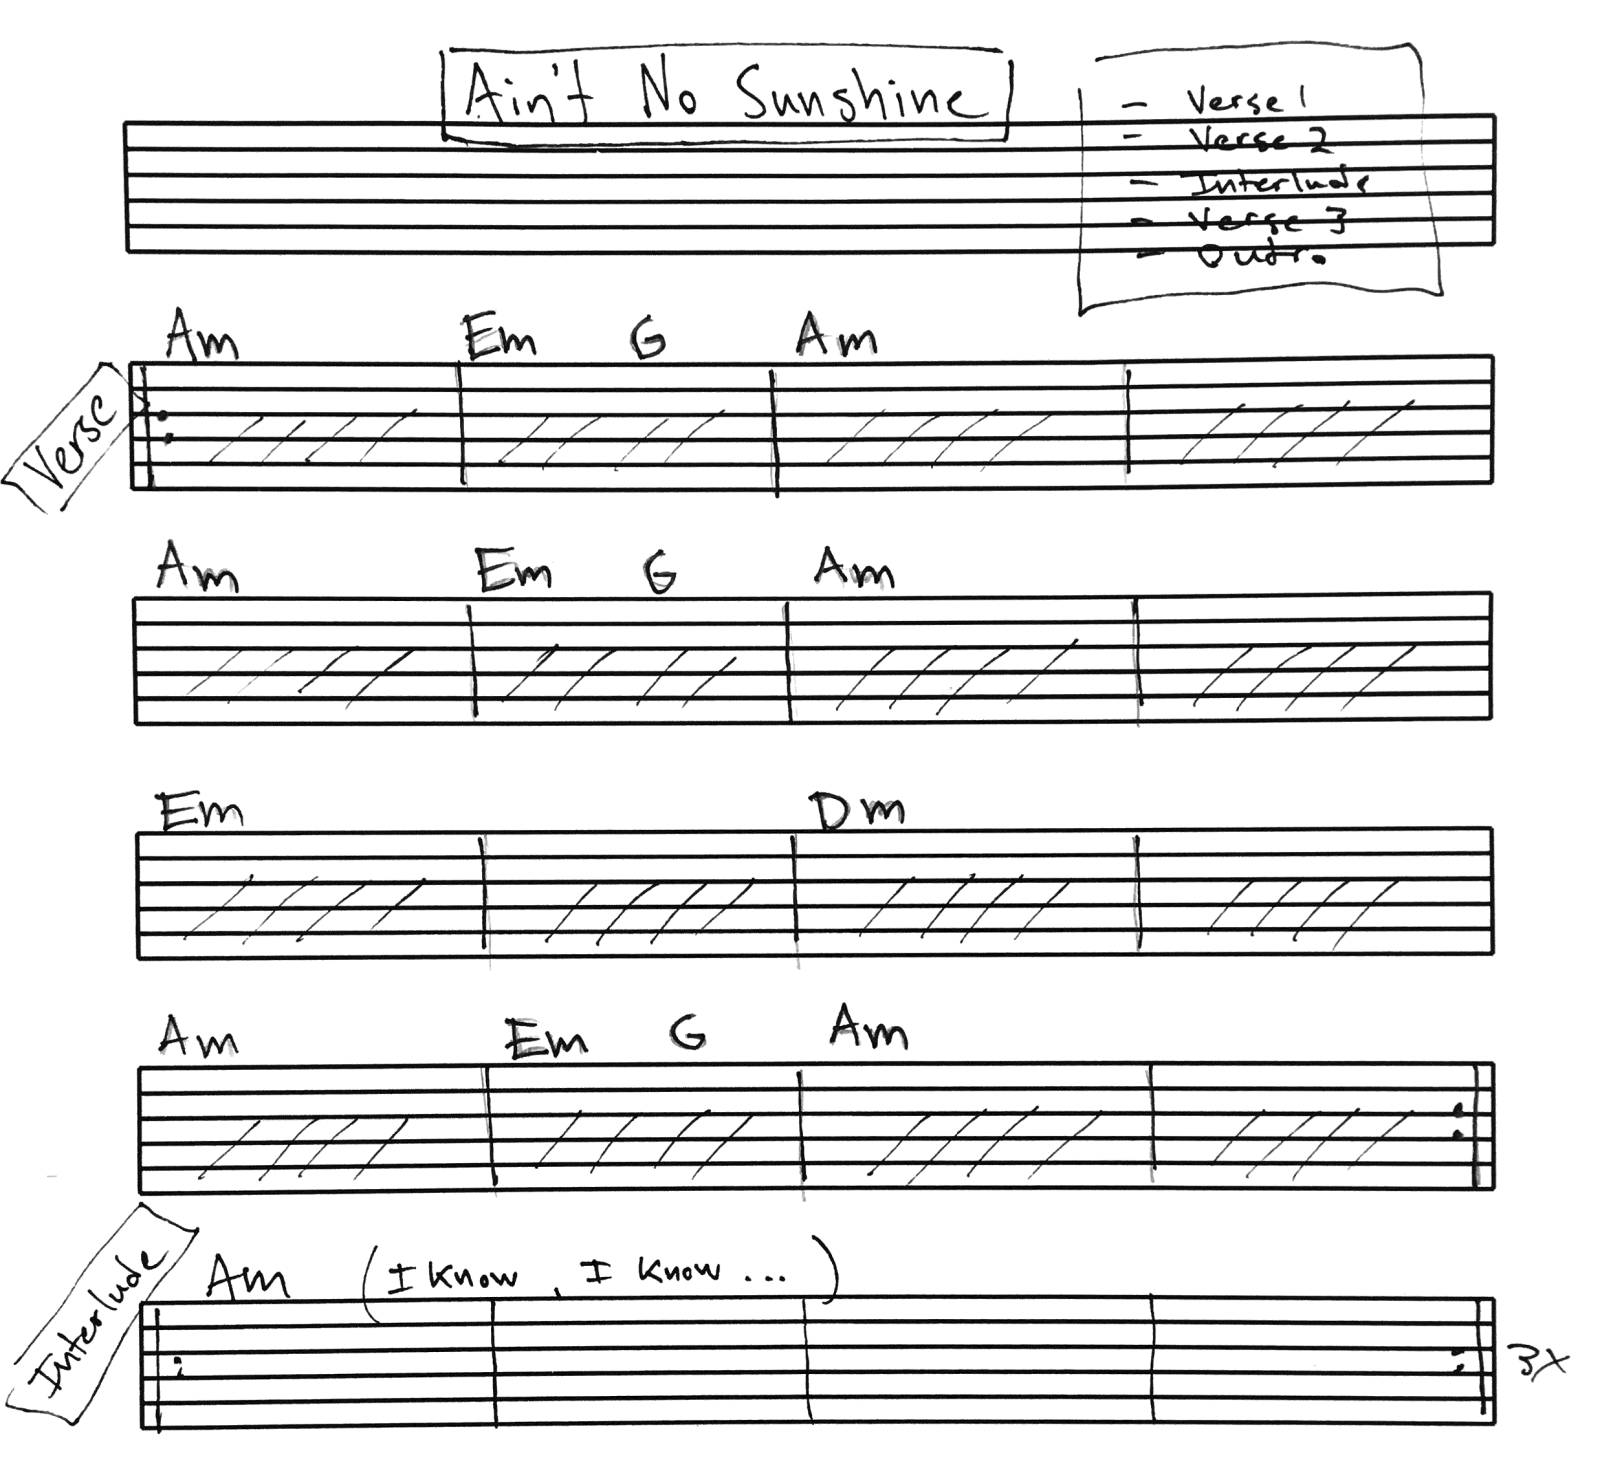 Ain't No Sunshine
- Verse 1
- Verse 2
- Interlude
- Verse 3
- Outro
Verse
Am Em G Am
Am Em G Am
Em Dm
Am Em G Am
Interlude
Am (I know, I know...)
3x